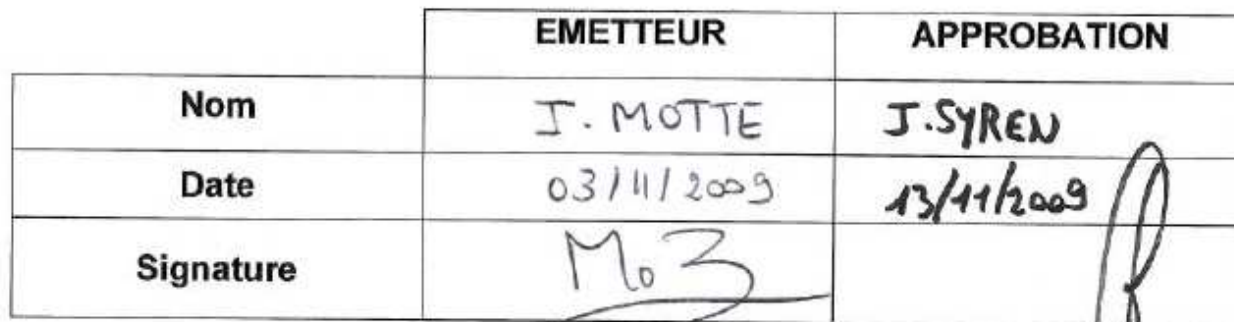 EMETTEUR APPROBATION
Nom J. MOTTE J. SYREN
Date 03/11/2009 13/11/2009
Signature